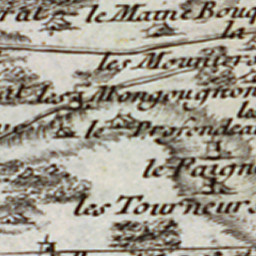 le Maine Bouq
la
les Mouniers
les Mongougnon
le Profendeau
le Faign
les Tourneurs